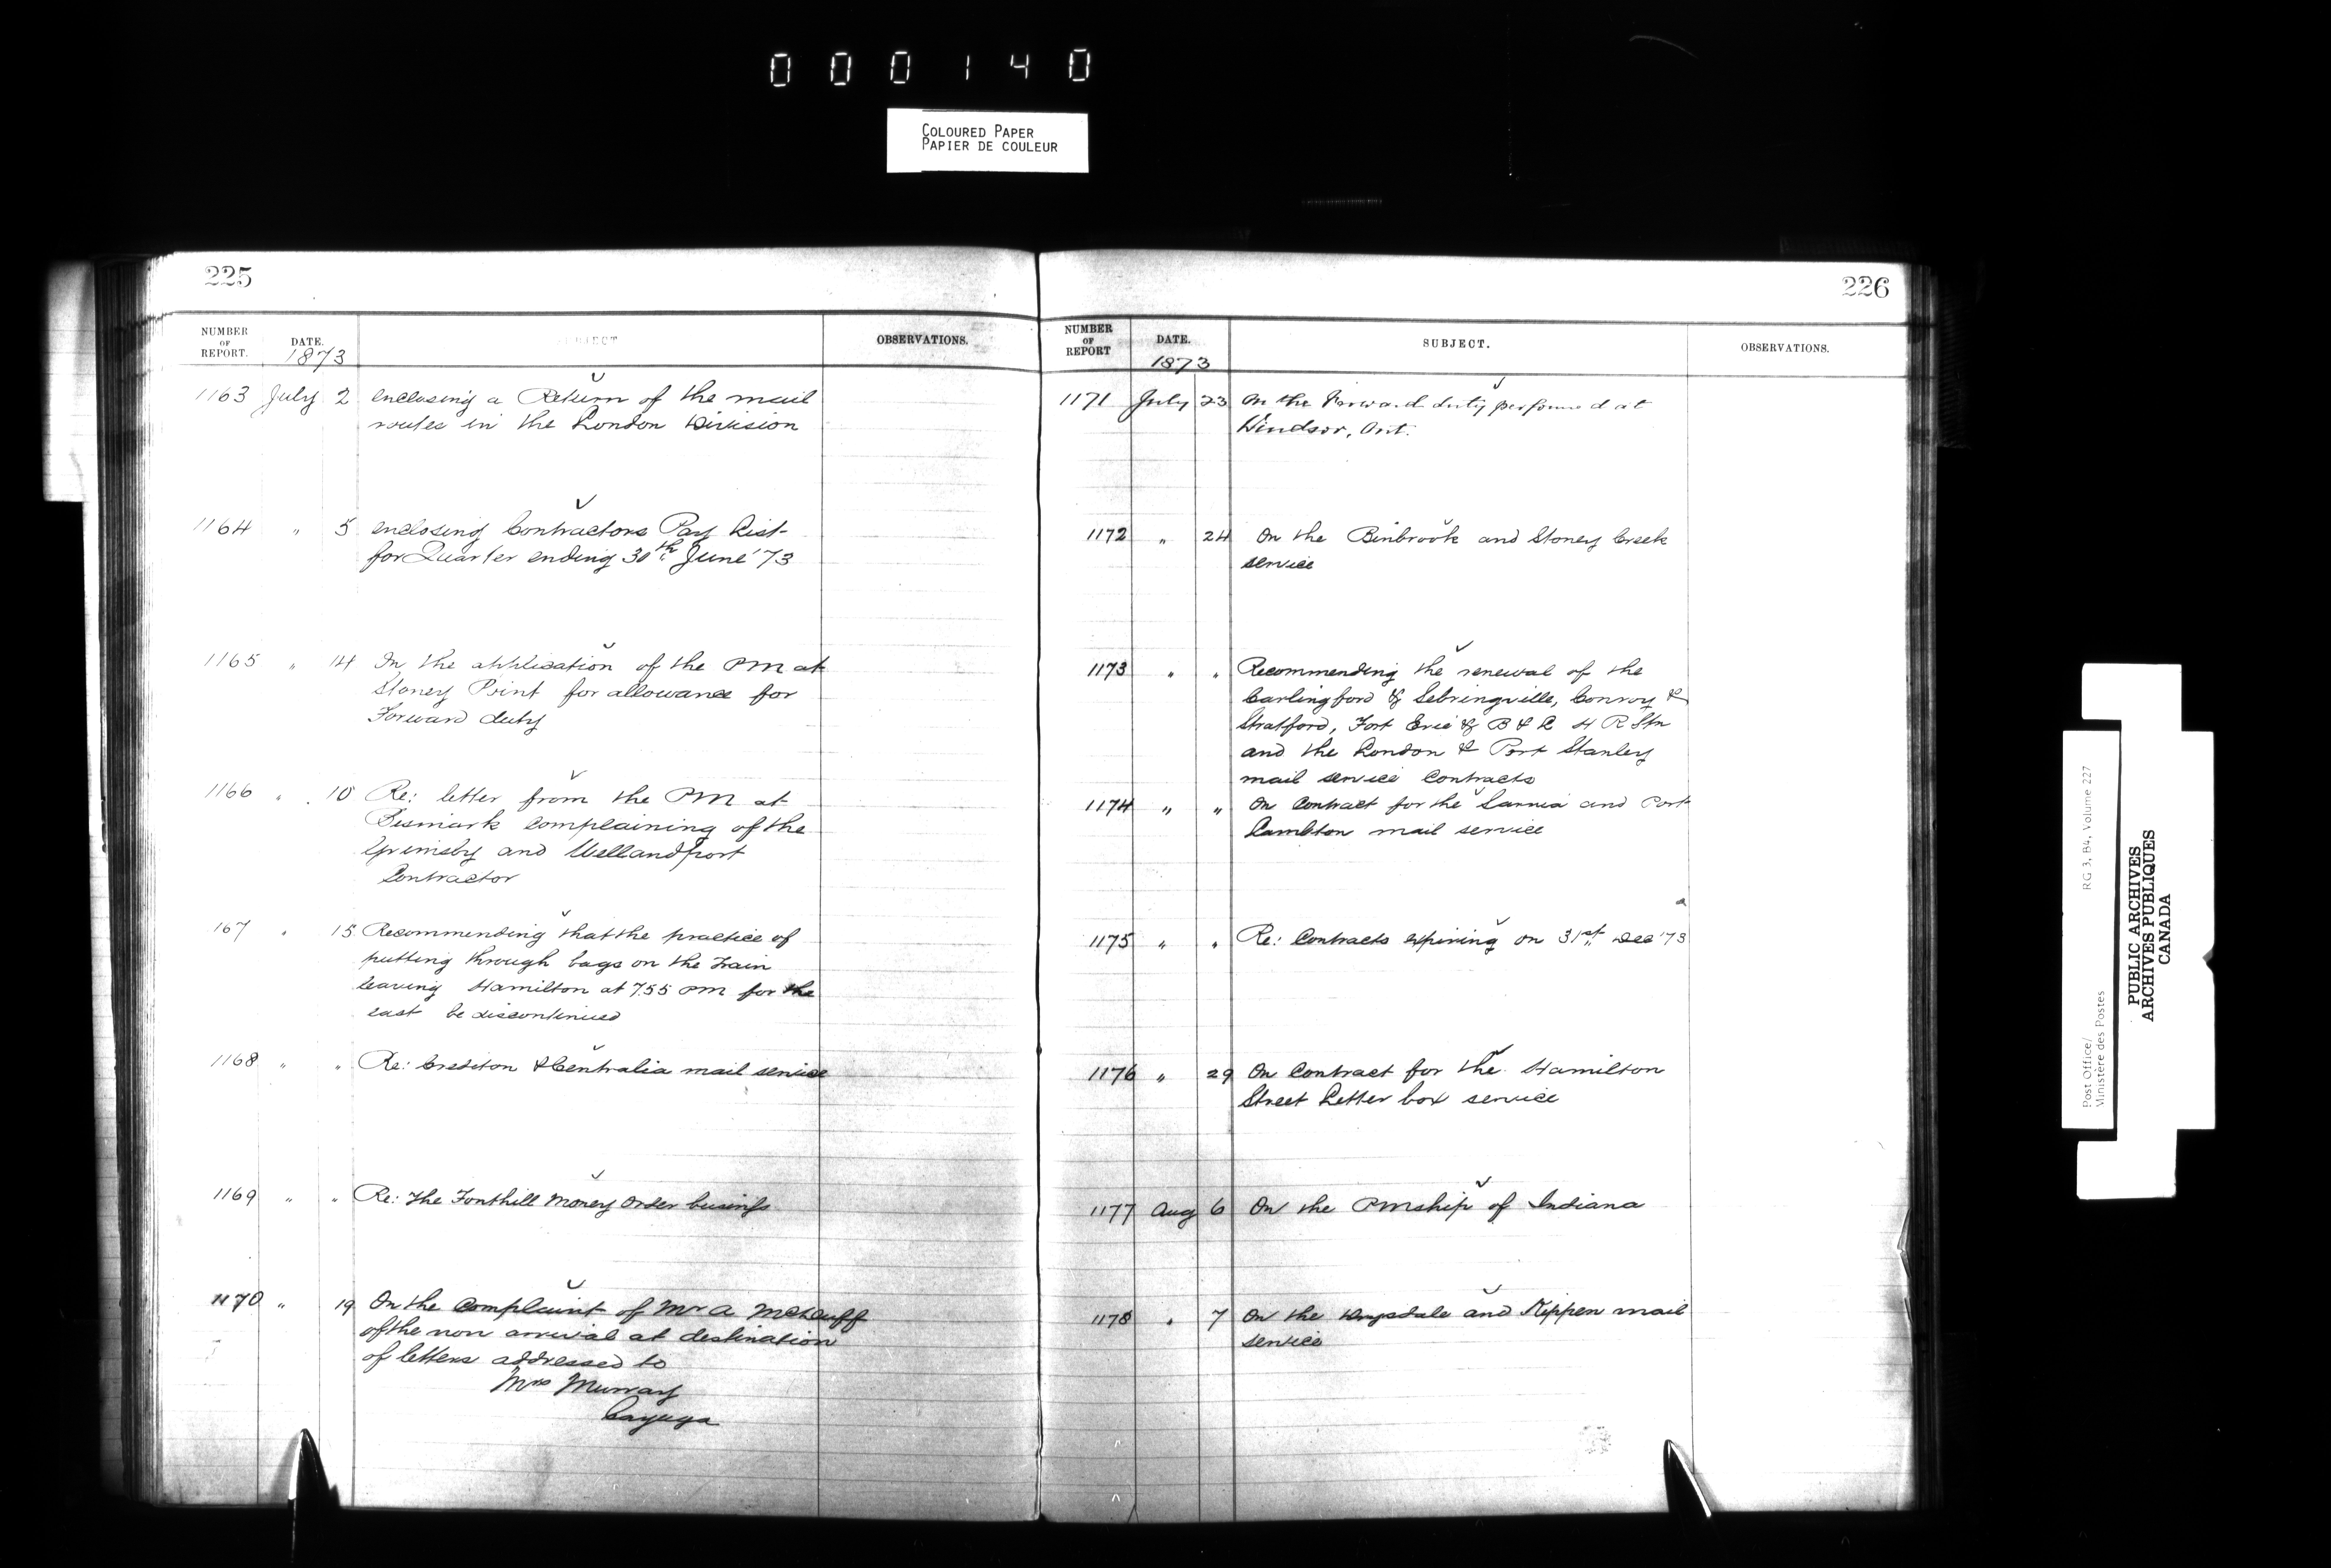 000140
COLOURED PAPER
PAPIER DE COULEUR
225
NUMBER OF REPORT. DATE. SUBJECT OBSERVATIONS.
1873
1163 July 2 enclosing a Return of the mail
routes in the London Division
1164 " 5 enclosing Contractors Pay List
for Quarter ending 30th June '73
1165 " 14 In the application of the PM at
Stoney Point for allowance for
Forward duty
1166 " 10 Re: letter from the PM at
Bismark complaining of the
Grimsby and Wellandport
Contractor
167 " 15 Recommending that the practice of
putting through bags on the train
leaving Hamilton at 7.55 PM for the
east be discontinued
1168 " " Re: Crediton & Centralia mail service
1169 " " Re: The Fonthill Money Order business
1170 " 19 On the complaint of Mr A
of the non arrival at destination
of letters addressed to
Mrs Murray
Cayuga
226
NUMBER OF REPORT DATE. SUBJECT. OBSERVATIONS.
1873
1171 July 23 On the Forward duty performed at
Windsor, Ont.
1172 " 24 On the Binbrook and Stoney Creek
service
1173 " " Recommending the renewal of the
Carlingford & Sebringville, Conroy &
Stratford, Fort Erie & B & L H R Stn
and the London & Port Stanley
mail service contracts
1174 " " On Contract for the Sarnia and Port
Lambton mail service
1175 " " Re: Contracts expiring on 31st Dec '73
1176 " 29 On Contract for the Hamilton
Street Letter box service
1177 Aug 6 On the PMship of Indiana
1178 " 7 On the and Kippen mail
service
Post Office/ RG 3, B4, Volume 227
Ministère des Postes
PUBLIC ARCHIVES
ARCHIVES PUBLIQUES
CANADA